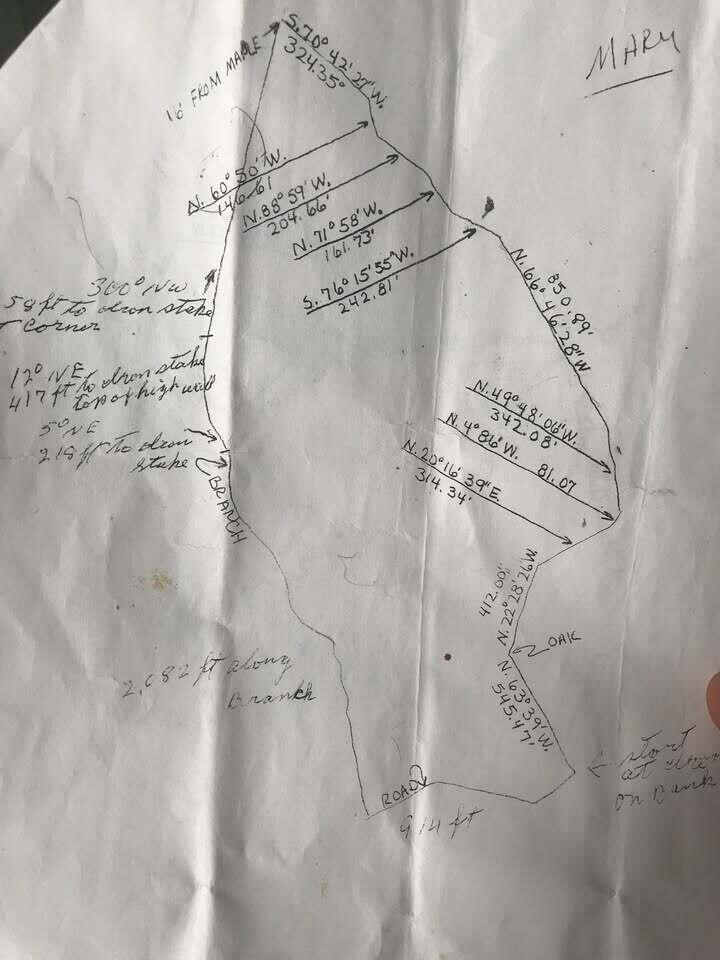 MARY
S. 70° 42' 27" W.
324.35°
16' FROM MAPLE
N. 60° 50' W.
146.61
N. 88° 59' W.
204.66'
N. 71° 58' W.
161.73'
S. 76° 15' 55" W.
242.81'
850.89'
N. 66° 46' 28" W
300° NW
58 ft to iron stake
Corner
12° NE
417 ft to iron stake
top of high wall
5° NE
218 ft to iron
stake
BRANCH
N. 49° 48' 06" W.
342.08'
N. 4° 86' W. 81.07
N. 20° 16' 39" E.
314.34'
412.00'
N. 22° 28' 26" W.
OAK
N. 63° 39' W.
545.47'
2,682 ft along
Branch
start
at iron
on Bank
ROAD
914 ft